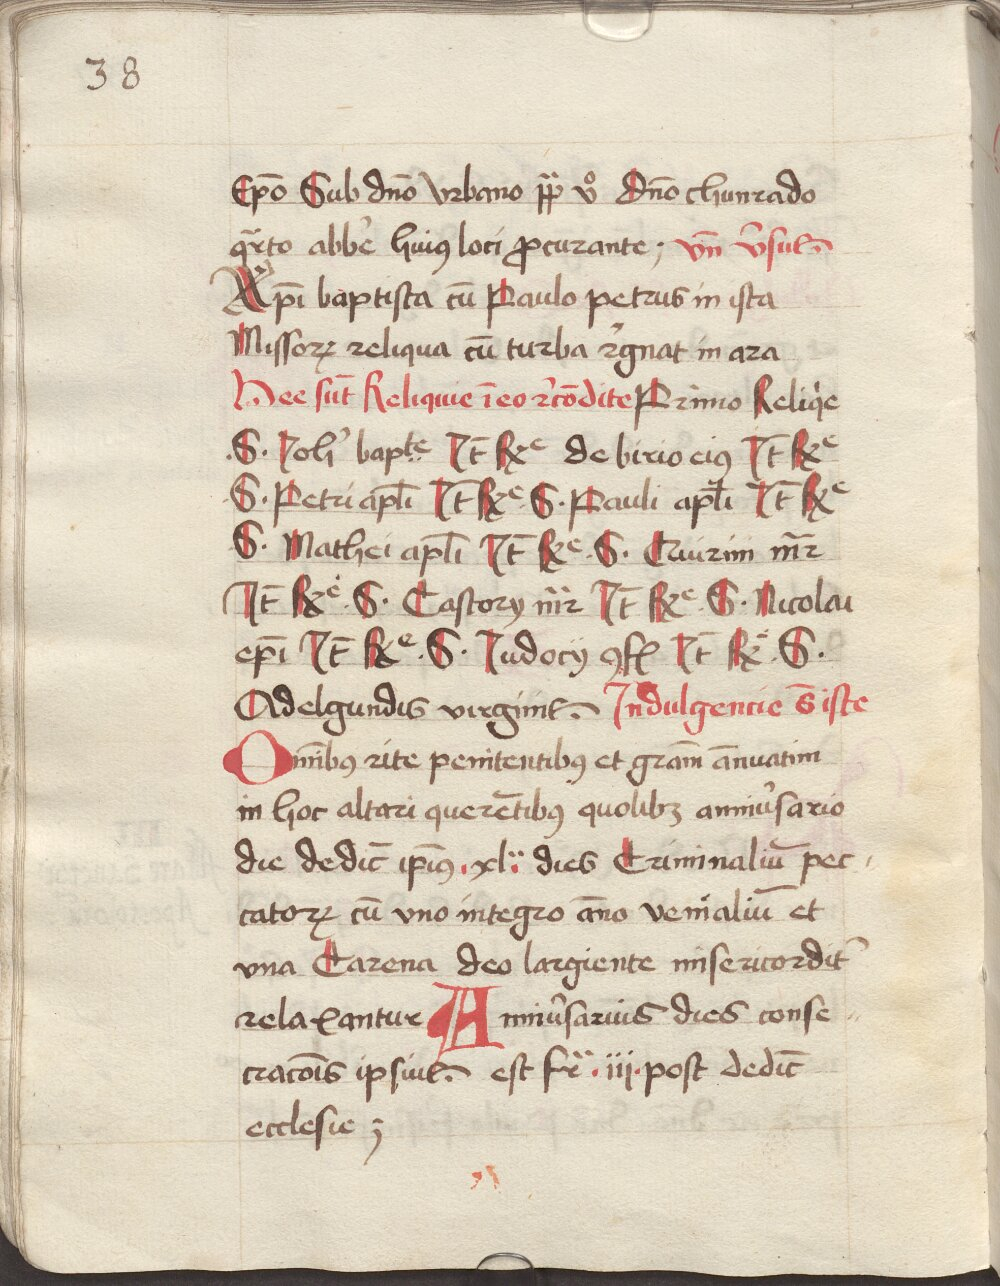 38
Ep̄o Sub dn̄o Vrbano pp̄ vº Dn̄o chunrado
qͣrto abbe huiꝰ loci ꝓcurante; Vn̄ v̓sul
Xp̄i baptista cū Paulo petrus in ista
Missoꝝ reliqua cū turba r̓gnat in ara
Hee sūt Reliquie ī eo r̓cōdite Primo Reliqͥe
.S. Joh̓ bapt̄e It̄ Rx̄ᵉ de birio eiꝰ It̄ Rxᵉ
.S. Petri apl̄i It̄ Rxᵉ .S. Pauli apl̄i It̄ Rxᵉ
.S. Mathei apl̄i It̄ Rxᵉ .S. Quirini mr̄r
It̄ Rxᵉ .S. Castory mr̄r It̄ Rxᵉ .S. Nicolai
ep̄i It̄ Rxᵉ .S. Judocij ꝯf It̄ Rxᵉ .S.
Adelgundis virginis Indulgencie s̄ iste
Om̄ibꝰ rite penitentibꝰ et gram̄ an̄uatim
in hoc altari querētibꝰ quolibꝫ anniu̓sario
die dedic̄ ip̄iꝰ .xl: dies Criminaliū pec-
catoꝝ cū vno integro an̄o venialiū et
vna Carena deo largiente misericordit̓
relaxantur Anniu̓sarius dies conse-
cracōis ipsius est fr̄ .iij. post dedic̄
ecclesie ꝫ